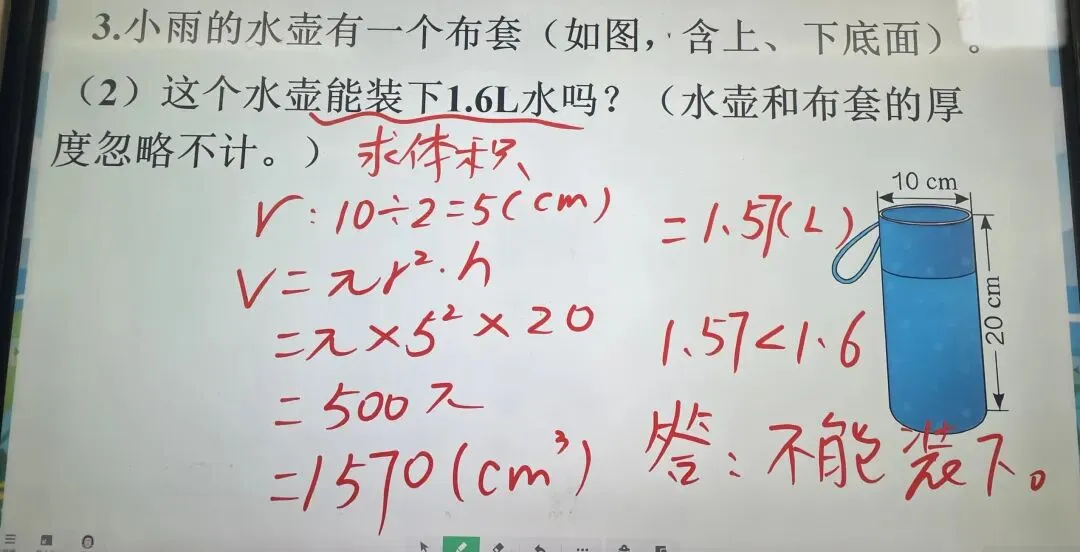 3.小雨的水壶有一个布套（如图，含上、下底面）。
（2）这个水壶能装下1.6L水吗？（水壶和布套的厚
度忽略不计。）求体积
r：10÷2=5(cm)
V=πr²·h
=π×5²×20
=500π
=1570(cm³)
=1.57(L)
1.57<1.6
答：不能装下。
10 cm
20 cm